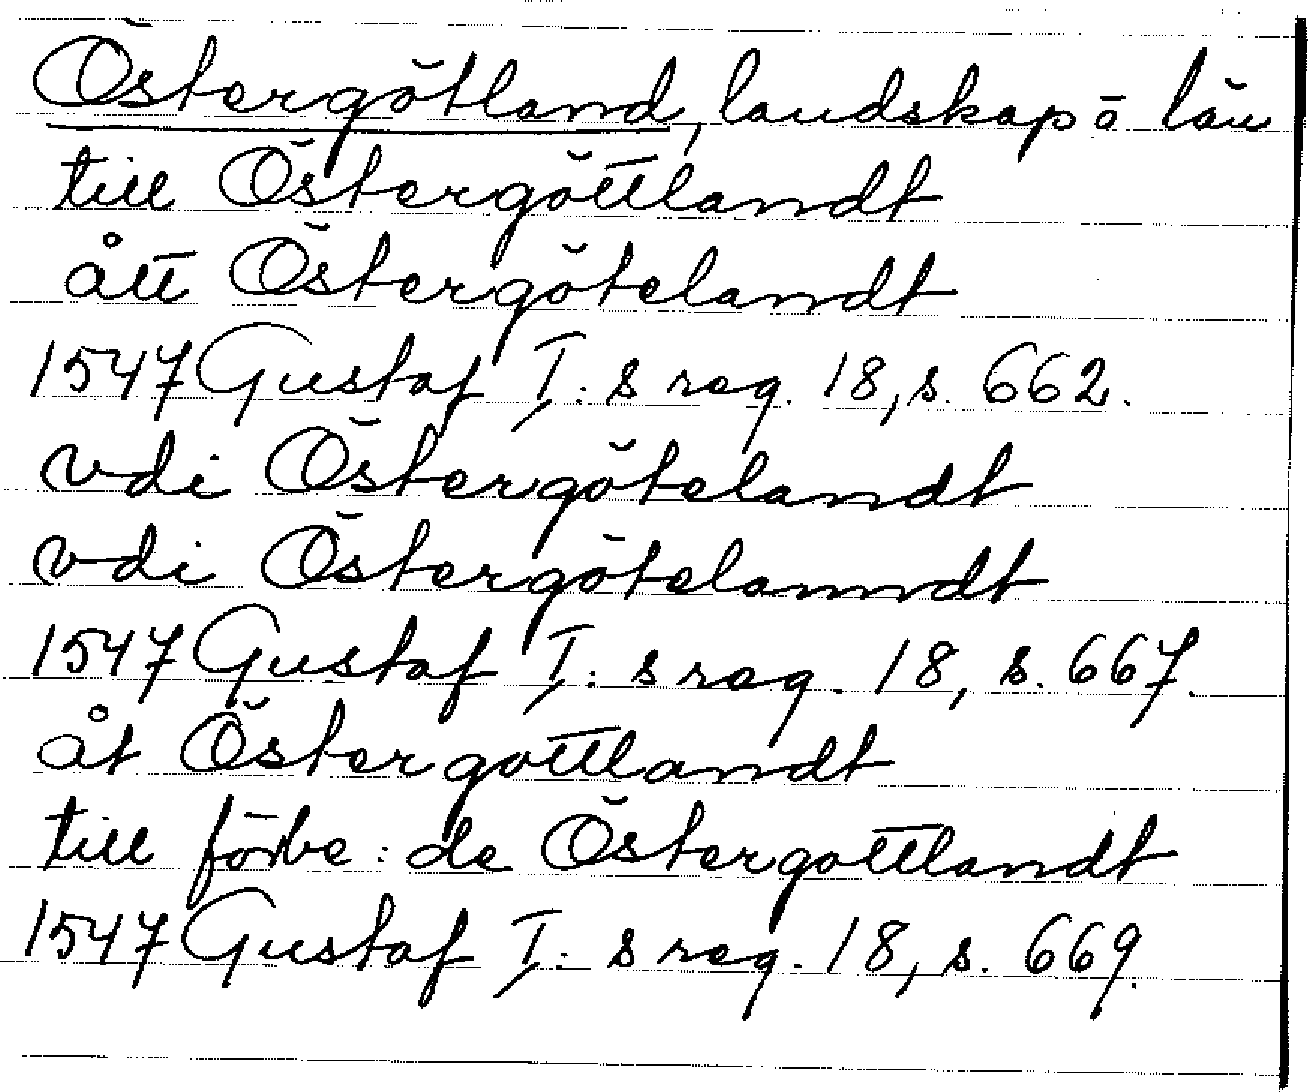 Östergötland, landskap o län
till Östergöttlandt
ått Östergötelandt
1547 Gustaf I:s reg. 18, s. 662.
vdi Östergötelandt
vdi Östergötelanndt
1547 Gustaf I:s reg. 18, s. 667.
åt Östergottlandt
till förbe:de Östergottlandt
1547 Gustaf I:s reg. 18, s. 669.